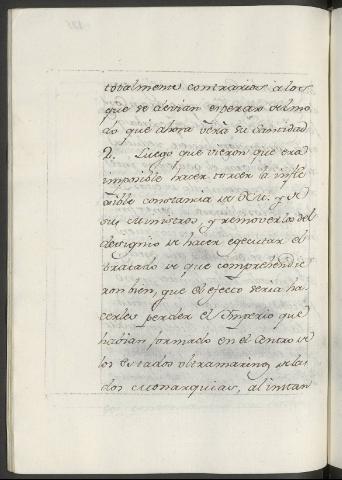 totalmente contrarios a los
que se devian esperar del mo
do que ahora verá su Santidad
2. Luego que vieron que era
imposible hacer torcer la infle
xible constancia de SS.MM. y de
sus Ministros, y removerlos del
designio de hacer egecutar el
tratado de que comprehendie
ron bien, que el efecto seria ha-
cerles perder el Imperio que
habian formado en el Centro de
los Estados ultramarinos de las
dos Monarquias, alimitan